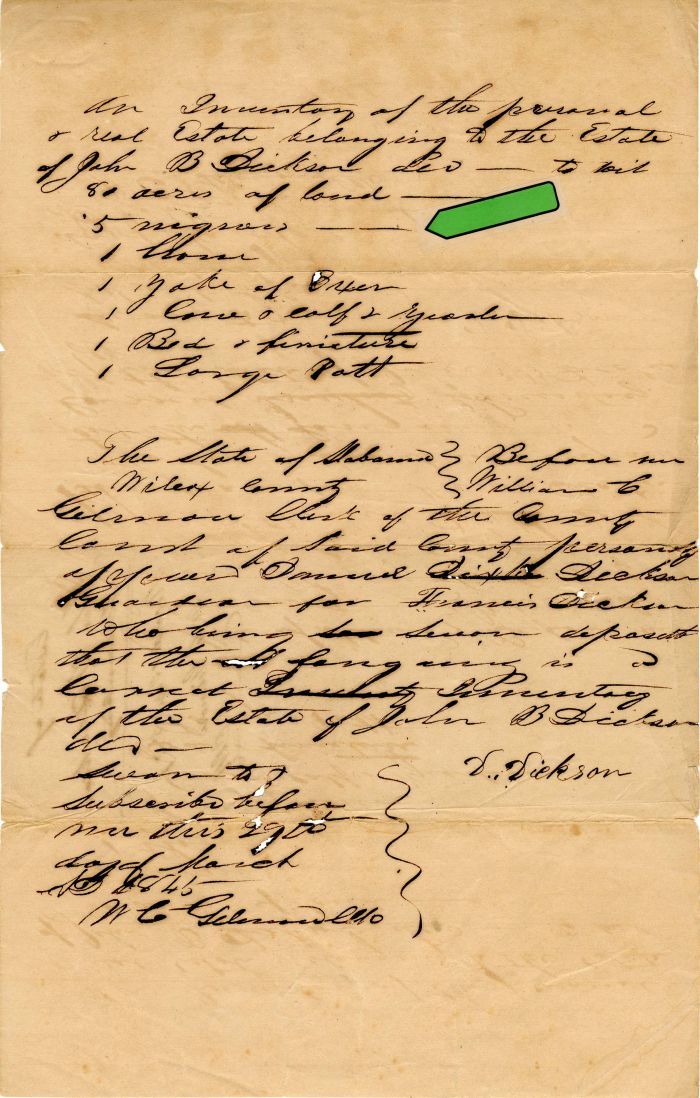 An Inventory of the personal
& real Estate belonging to the Estate
of John B Dickson decd — to wit
80 acres of land —
5 negroes — —
1 Horse
1 Yoke of Oxen
1 Cow & calf & Yearlin
1 Bed & furniture
1 Large Pott
The State of Alabama } Before me
Wilcox County } William C
Gilmour Clerk of the County
Court of Said County personaly
appeared Daniel Dickson
Guardian for Francis Dickson
Who being sworn deposeth
that the foregoing is a
Correct Inventory
of the Estate of John B Dickson
decd —
D. Dickson
Sworn to &
Subscribed before
me this 29th
day of March
AD 1845
W C Gilmour Clk